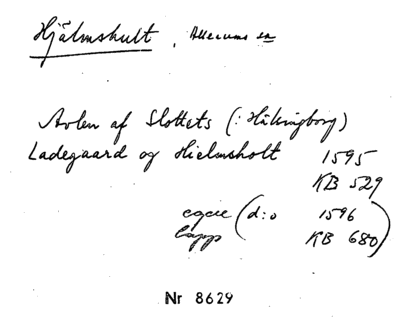 Hjälmshult, Allerums sn
Avlen af Slottets (: Hälsingborg)
Ladegaard og Hielmsholt 1595
KB 529
(d:o 1596
KB 680)
Nr 8629